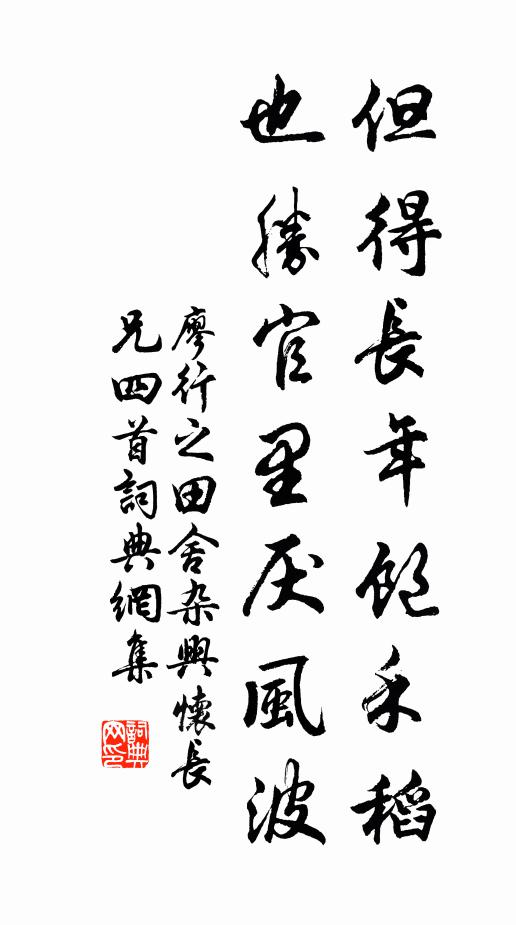 但得長年飽禾稻
也勝官里厌風波
廖行之田舍杂興懷長
兄四首詞典網集
詞典
网印